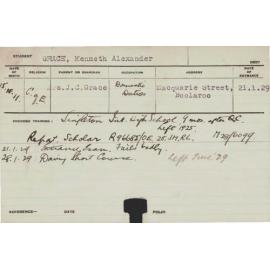 STUDENT GRACE, Kenneth Alexander
DATE OF BIRTH RELIGION PARENT OR GUARDIAN OCCUPATION ADDRESS DATE OF ENTRY
15 C. of E. Mrs. J.C. Grace Domestic Duties Macquarie Street, Boolaroo 21.1.29
PREVIOUS TRAINING: Singleton Int. High School 9 mos. after
Left 1925
Repat. Scholar
21.1.29 Entrance Exam. Failed badly.
28.1.29 Dairy Short Course. Left June '29
REFERENCE— DATE— FOLIO